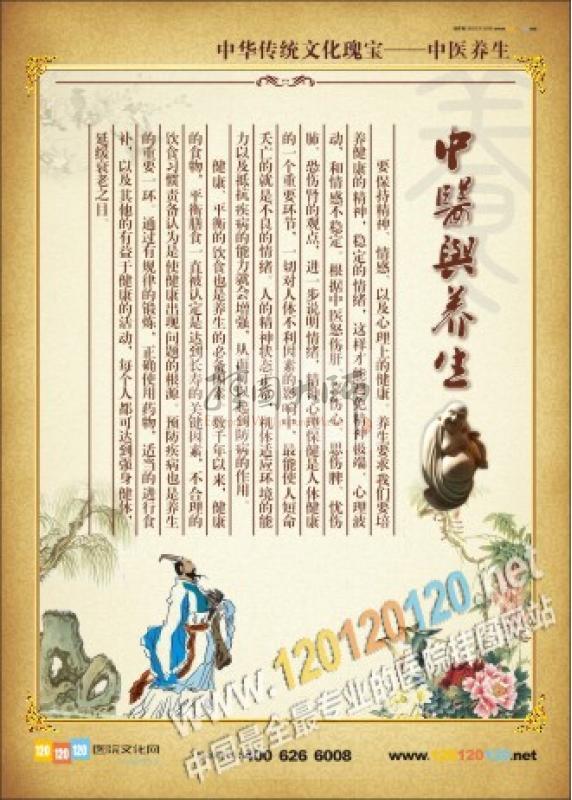 中华传统文化瑰宝——中医养生
中醫與养生
要保持精神、情感、以及心理上的健康。养生要求我们要培
养健康的精神，稳定的情绪，这样才能避免精神极端、心理波
动、和情感不稳定。根据中医怒伤肝、喜伤心、思伤脾、忧伤
肺、恐伤肾的观点，进一步说明情绪、精神心理保健是人体健康
的一个重要环节，一切对人体不利因素的影响中，最能使人短命
夭亡的就是不良的情绪。人的精神状态正常，机体适应环境的能
力以及抵抗疾病的能力就会增强，从而可以起到防病的作用。
健康、平衡的饮食也是养生的必备因素。数千年以来，健康
的食物，平衡膳食一直被认定是达到长寿的关键因素，不合理的
饮食习惯责备认为是使健康出现问题的根源。预防疾病也是养生
的重要一环，通过有规律的锻炼，正确使用药物，适当的进行食
补，以及其他的有益于健康的活动，每个人都可达到强身健体，
延缓衰老之目。
www.120120120.net
中国最全最专业的医院挂图网站
120 120 120 医院文化网
400 626 6008
www.120120120.net